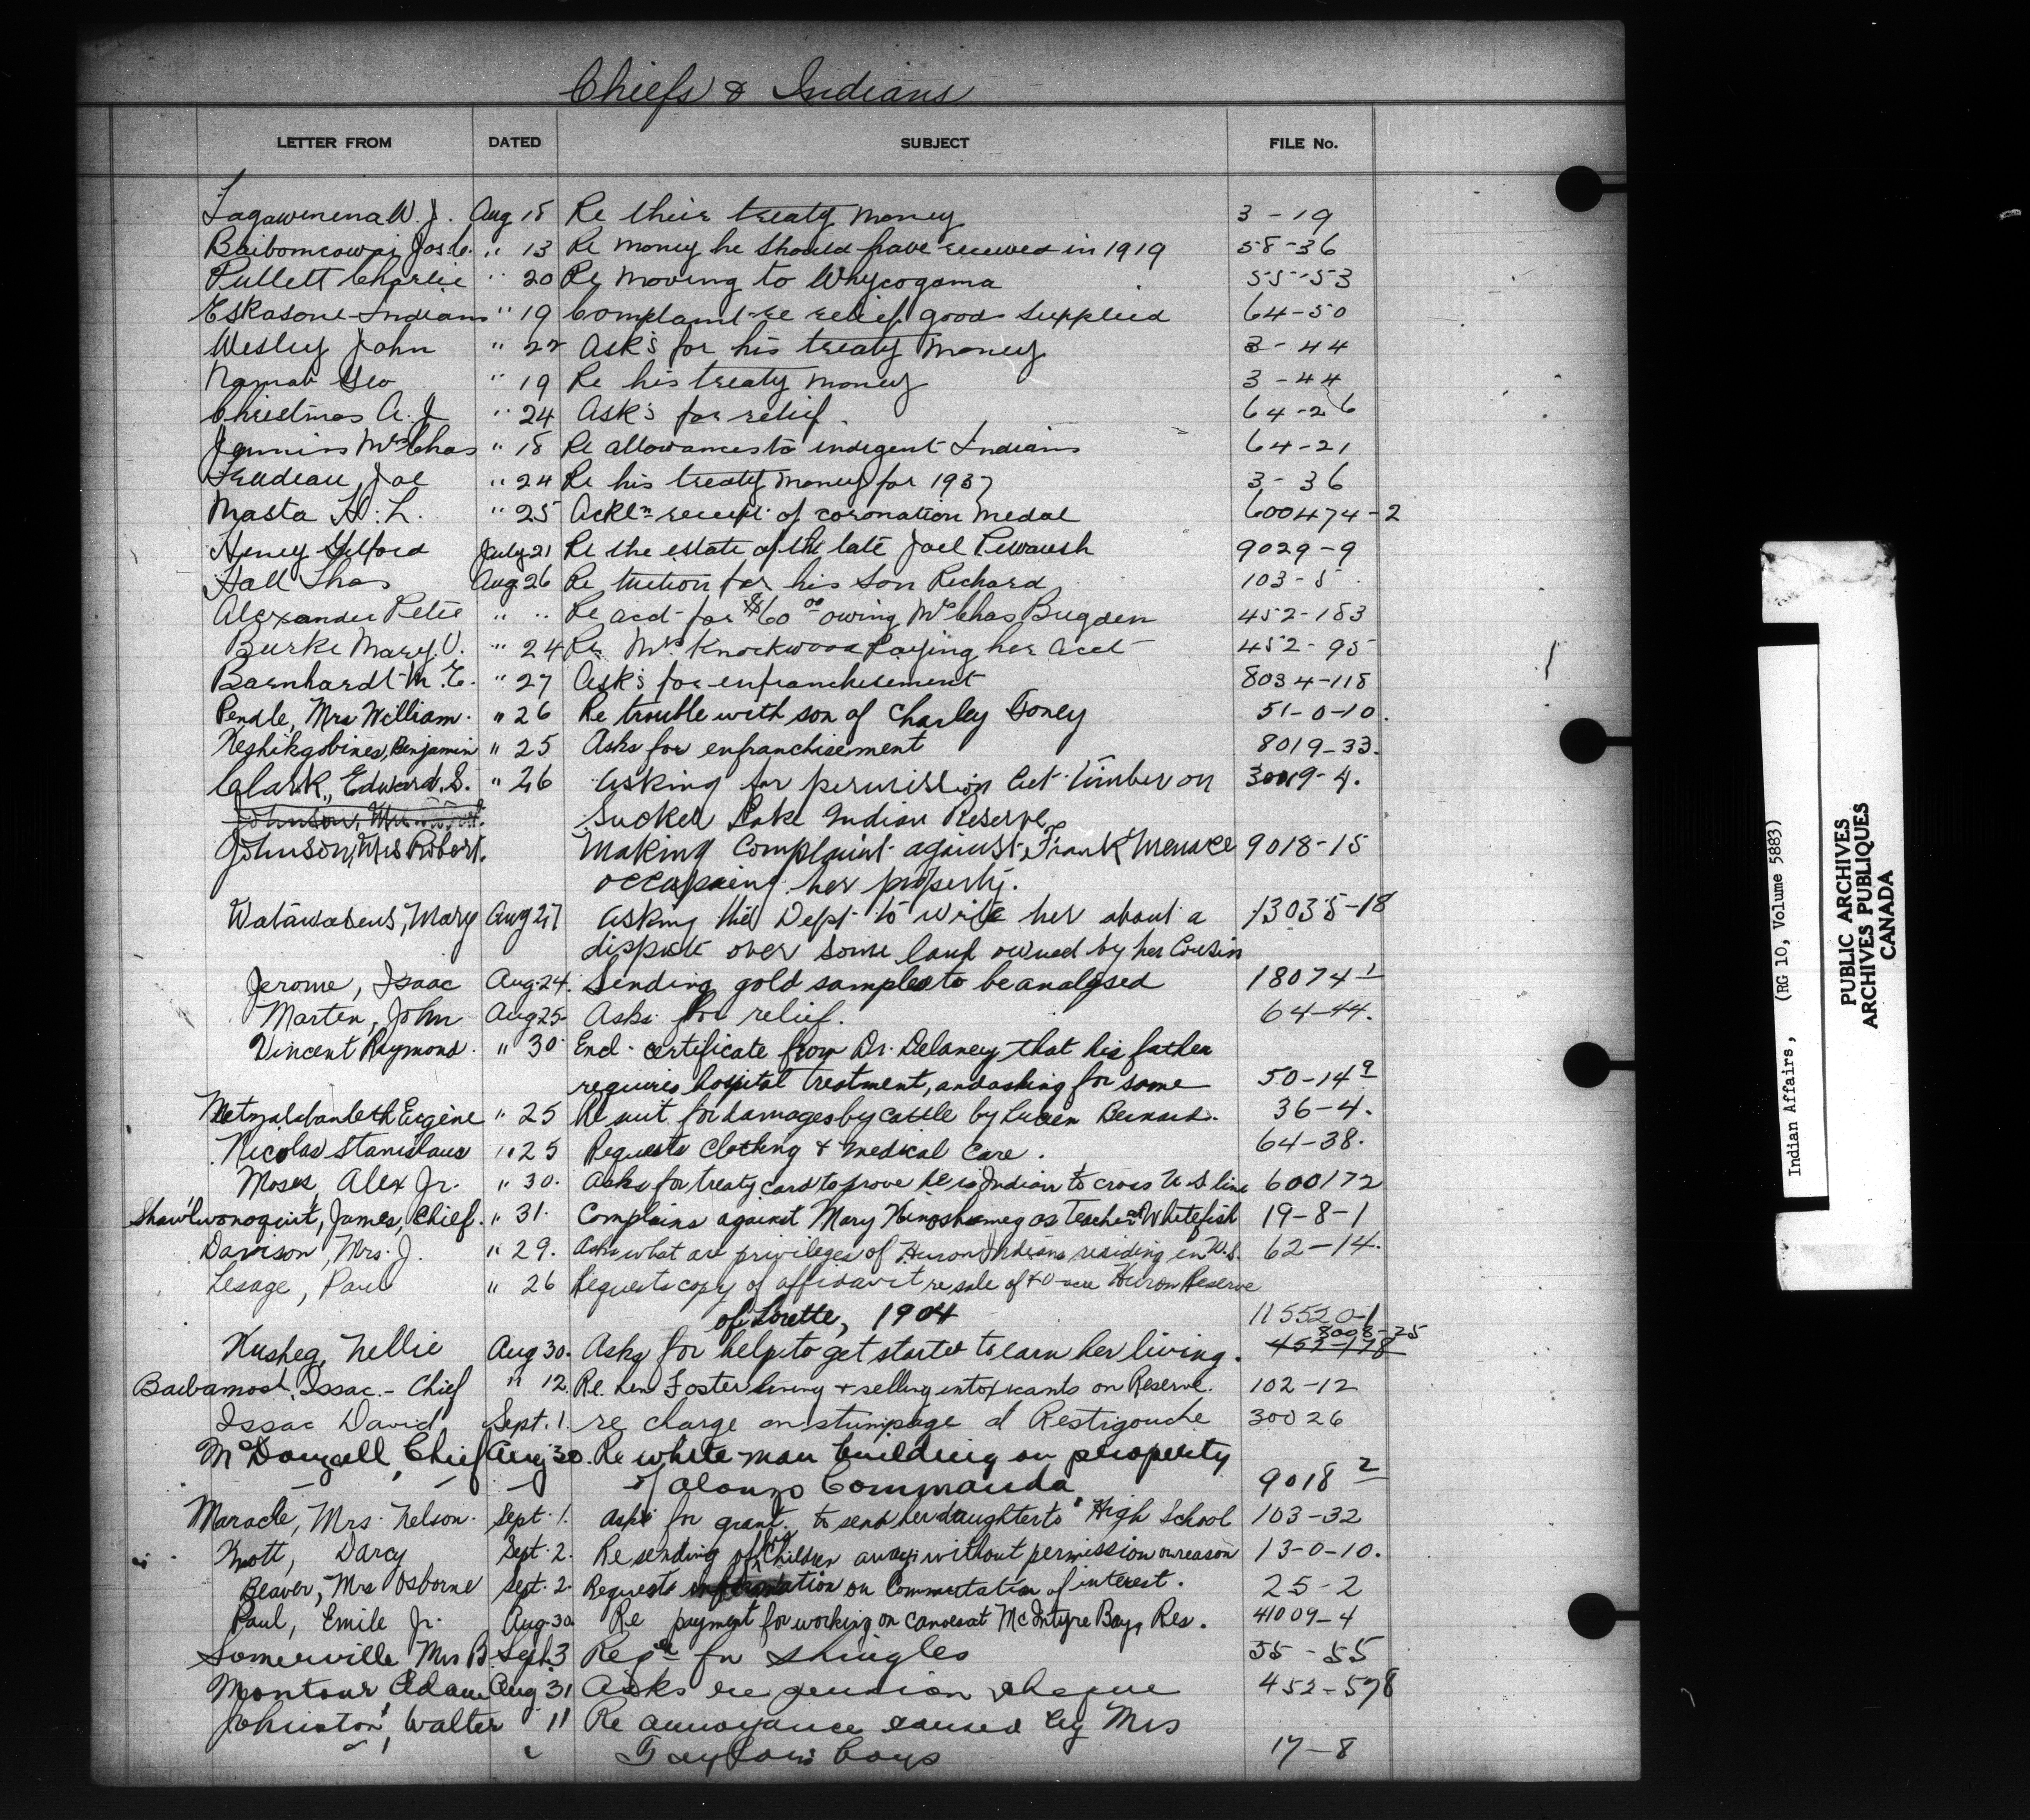 Chiefs & Indians
LETTER FROM DATED SUBJECT FILE No.
W. J. Aug 18 Re their treaty money 3-19
" 13 Re money he should have received in 1919 58-36
Pullett Charlie " 20 Re moving to Whycogoma 55-53
Eskasoni Indians " 19 Complaint re relief goods supplied 64-50
Wesley John " 22 Ask's for his treaty money 3-44
Geo " 19 Re his treaty money 3-44
Christmas A. J. " 24 Ask's for relief 64-26
Mrs Chas " 18 Re allowances to indigent Indians 64-21
Trudeau, Joe " 24 Re his treaty money for 1937 3-36
Masta H. L. " 25 Ackln receipt of coronation medal 600474-2
Henry Gilford July 21 Re the estate of the late Joel 9029-9
Hall Thos Aug 26 Re tuition for his son Richard 103-5
Alexander Peter " " Re acct for $60 00 owing Mr Chas Bugden 452-183
Burke Mary V. " 24 Re Mrs Knockwood Paying her acct 452-95
Barnhardt M. E. " 27 Ask's for enfranchisement 8034-118
Pendle, Mrs William. " 26 Re trouble with son of Charley Toney 51-0-10.
Keshikgobines, Benjamin " 25 Asks for enfranchisement 8019-33.
Clark, Edward. S. " 26 Asking for permission Cut Timber on 30019-4.
Johnson, Mrs Sucker Lake Indian Reserve
Johnson, Mrs Robert. Making Complaint against Frank 9018-15
occupaing her property.
Mary Aug 27 Asking the Dept to write her about a 13035-18
dispute over some land owned by her Cousin
Jerome, Isaac Aug 24. Sending gold samples to be analysed 18074-1
Marten, John Aug 25- Asks for relief. 64-44.
Vincent Raymond. " 30. Encl. certificate from Dr. Delaney that his father
requires hospital treatment, and asking for same 50-14 9
Eugène " 25 Re suit for damages by cattle by Bernard. 36-4.
Nicolas Stanislaus " 25 Requests Clothing & Medical Care. 64-38.
Moses, Alex Jr. " 30. Asks for treaty card to prove he is Indian to cross U S line 600172
James, Chief. " 31. Complains against Mary as Teacher at Whitefish 19-8-1
Davison, Mrs. J. " 29. Asks what are privileges of Huron Indians residing in U.S. 62-14.
Lesage, Paul " 26 Requests copy of affidavit re sale of 40 acre Huron Reserve
of Lorette, 1904 115520-1
8008-25
Kusheg, Nellie Aug 30. Asks for help to get started to earn her living. 452-178
Issac. - Chief " 12. Re. Len Foster living & selling intoxicants on Reserve. 102-12
Issac David Sept. 1. re charge on stumpage at Restigouche 30026
McDougall, Chief Aug 30. Re white man building on property
of Alonzo Commanda 9018 2
Maracle, Mrs. Nelson. Sept. 1. Asks for grant to send her daughter to High School 103-32
Knott, Darcy Sept. 2. Re sending of his Children away without permission or reason 13-0-10.
Beaver, Mrs Osborne Sept. 2. Requests information on Commutation of interest. 25-2
Paul, Emile Jr. Aug 30 Re payment for working on canoes at McIntyre Bay, Res. 41009-4
Somerville Mrs B. Sept. 3 Reqn for Shingles 55-55
Montour, Adam Aug 31 Asks re pension cheque 452-578
Johnston, Walter 11 Re annoyance caused by Mrs
Taylor's boys 17-8
Indian Affairs, (RG 10, Volume 5883)
PUBLIC ARCHIVES
ARCHIVES PUBLIQUES
CANADA